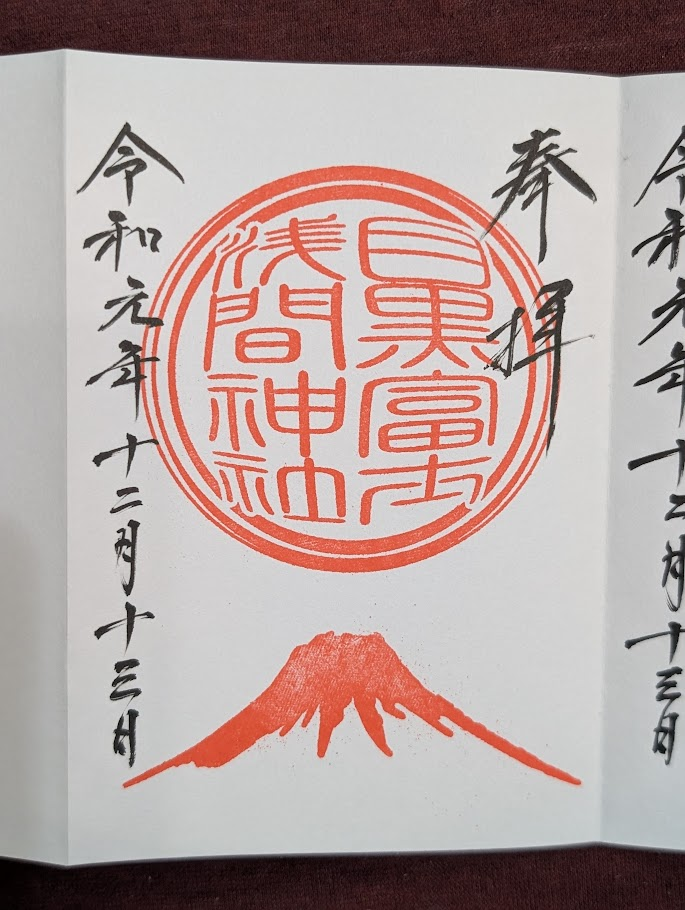 令和元年十二月十三日
奉拝
目黒富士
浅間神社
令和元年十二月十三日